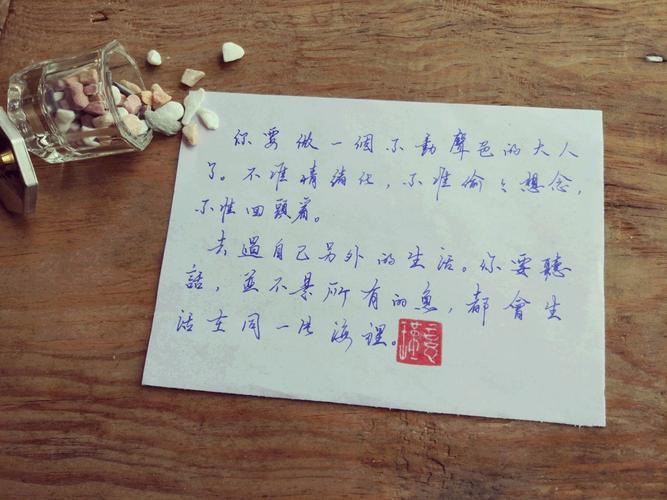 你要做一個不動聲色的大人
了。不准情緒化，不准偷々想念，
不准回頭看。
去過自己另外的生活。你要聽
話，並不是所有的魚，都會生
活在同一片海裡。